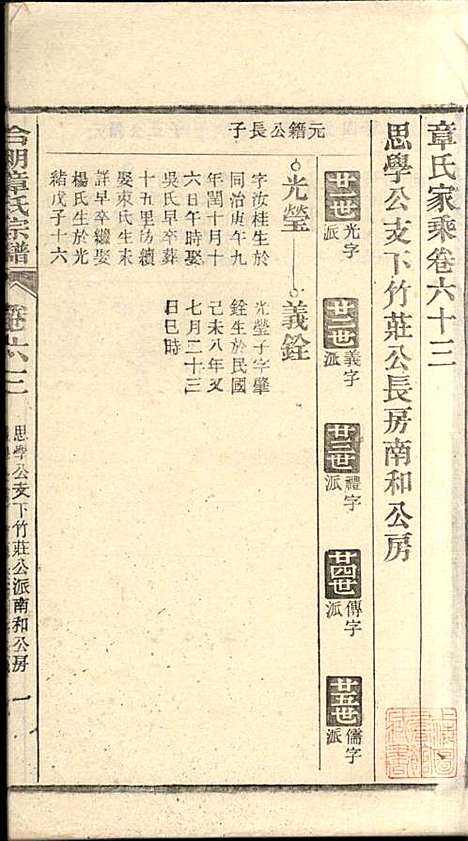 章氏家乘卷六十三
思學公支下竹莊公長房南和公房
廿一世 光字派
廿二世 義字派
廿三世 禮字派
廿四世 傳字派
廿五世 儒字派
元籍公長子
光瑩
字汝桂生於
同治庚午九
年閏十月十
六日午時娶
吳氏早卒葬
十五里坊續
娶東氏生未
詳早卒繼娶
楊氏生於光
緒戊子十六
義銓
光瑩子字肇
銓生於民國
己未八年又
七月二十三
日巳時
合朙章氏宗譜
卷六十三
思學公支下竹莊公派南和公房
一